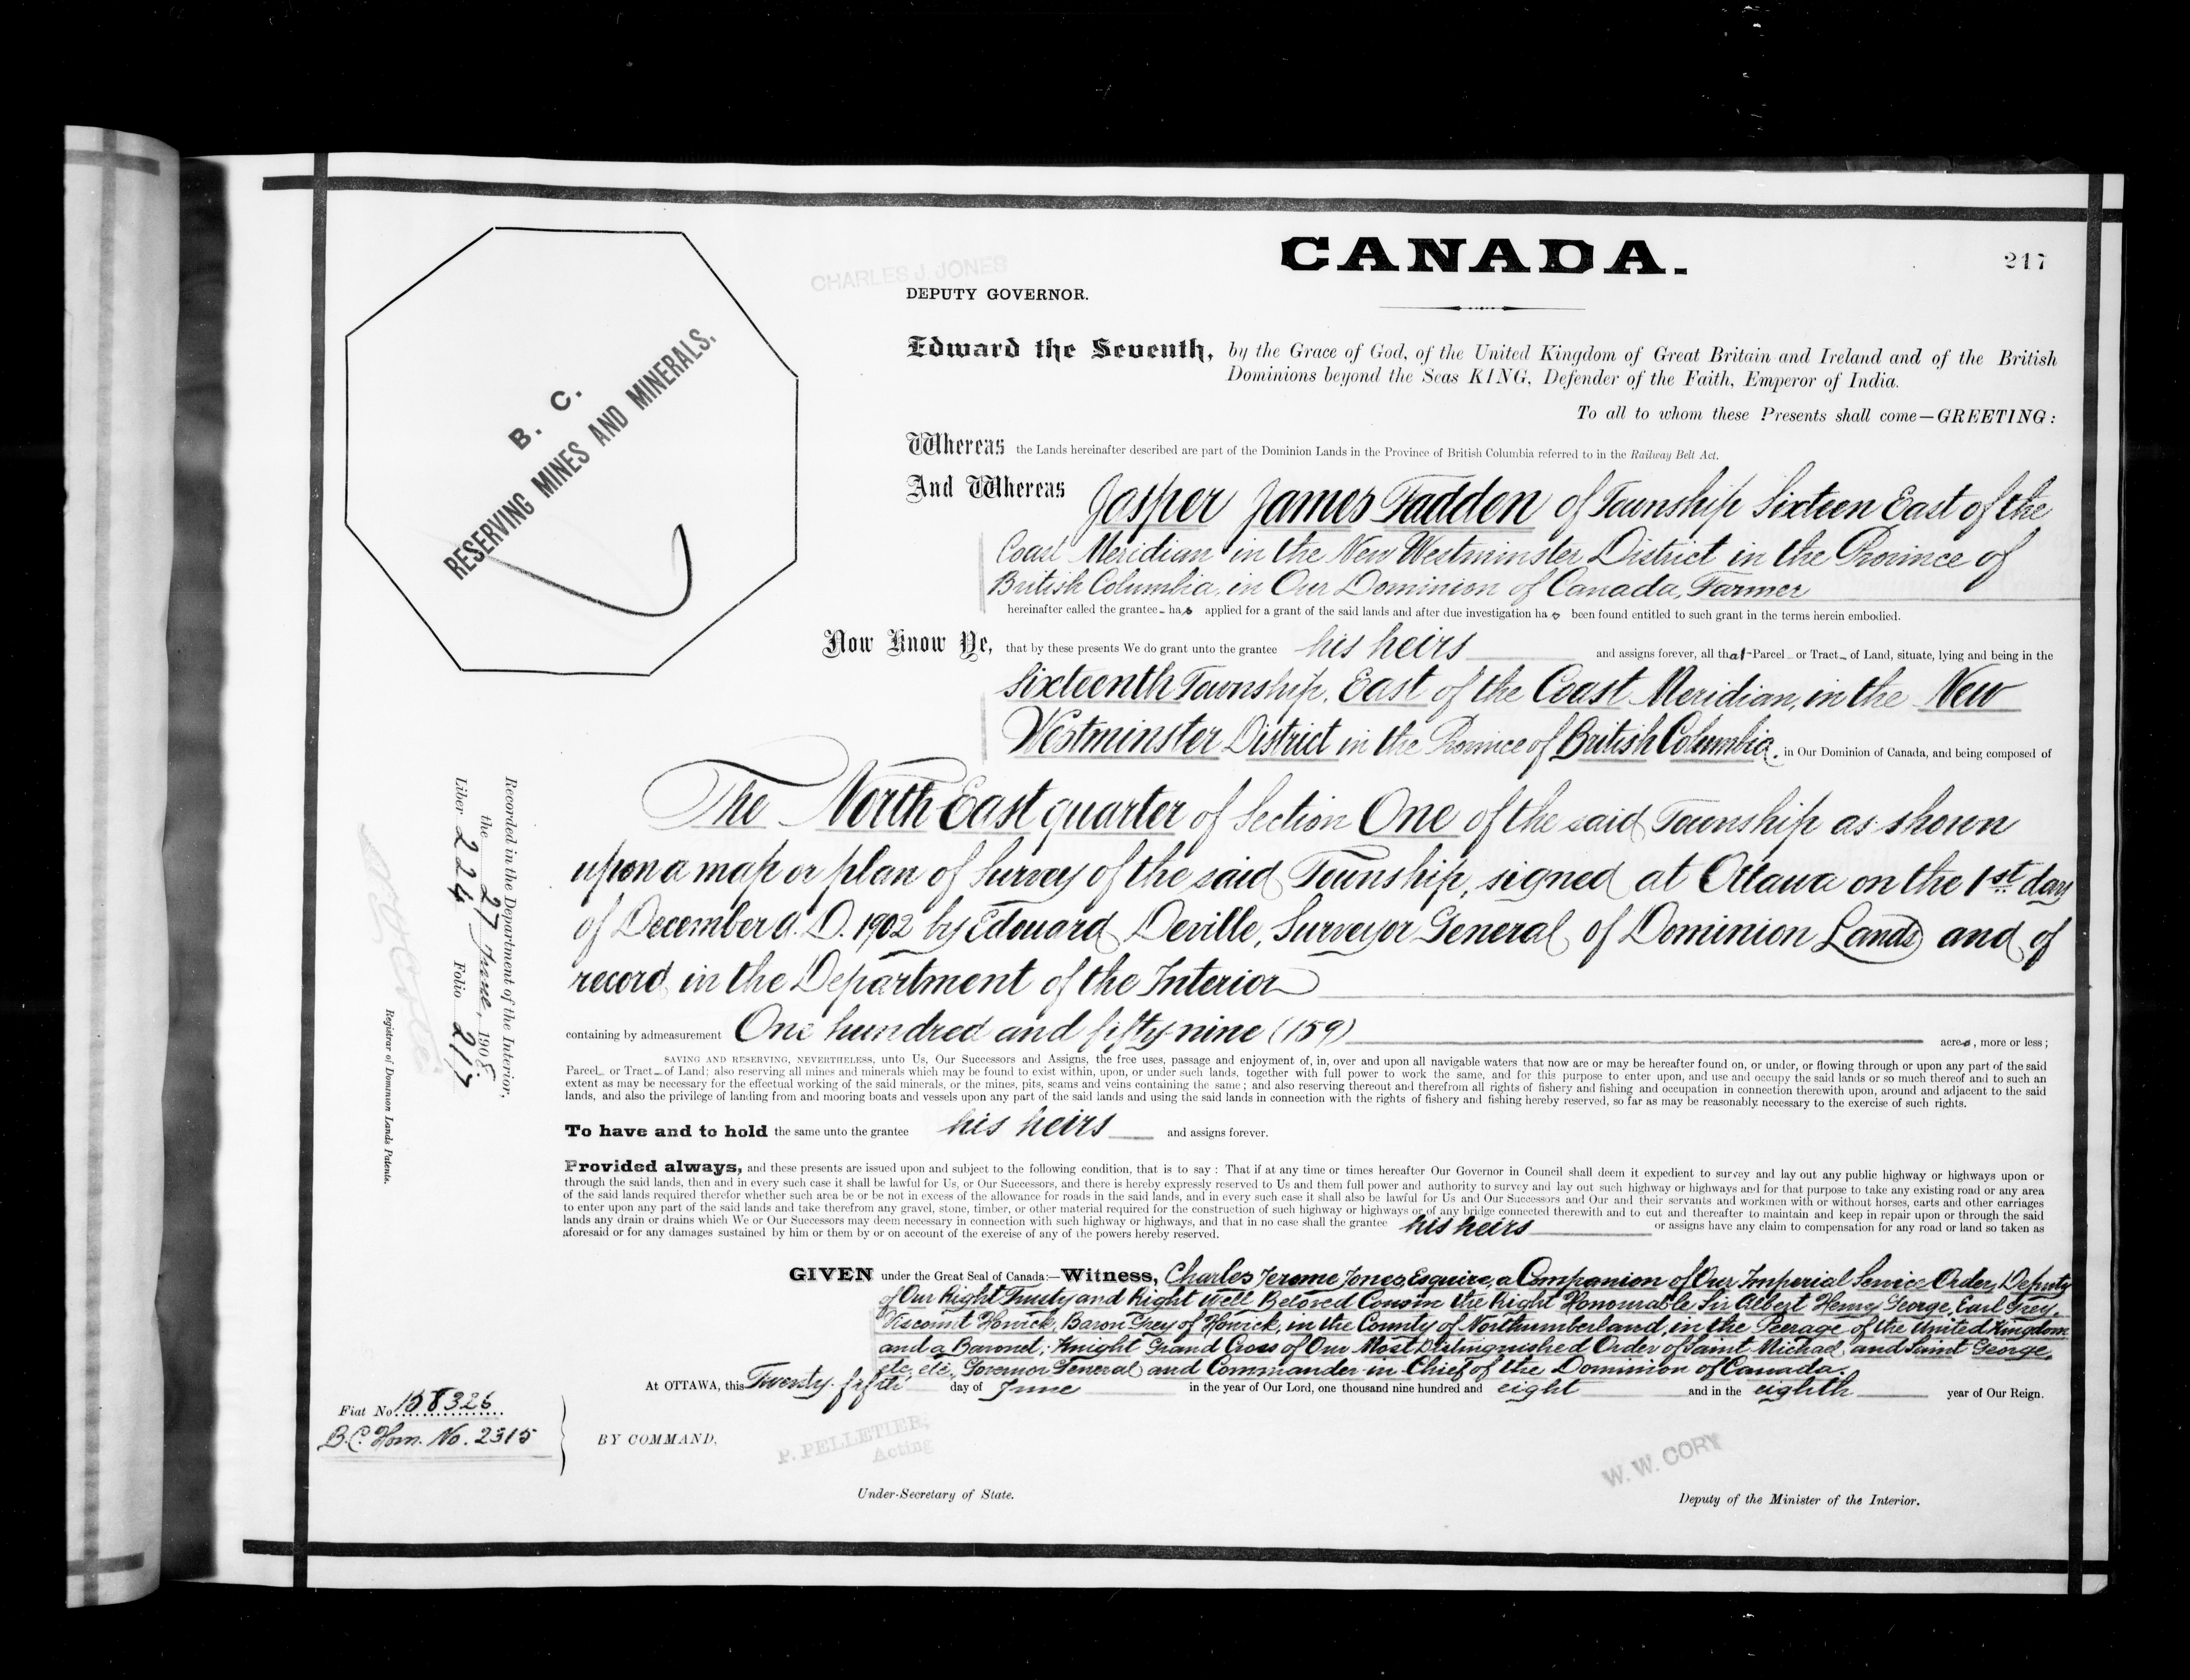 CANADA.
217
CHARLES J. JONES
DEPUTY GOVERNOR.
B. C.
RESERVING MINES AND MINERALS.
Edward the Seventh, by the Grace of God, of the United Kingdom of Great Britain and Ireland and of the British
Dominions beyond the Seas KING, Defender of the Faith, Emperor of India.
To all to whom these Presents shall come—GREETING:
Whereas the Lands hereinafter described are part of the Dominion Lands in the Province of British Columbia referred to in the Railway Belt Act.
And Whereas Jasper James Fadden of Township Sixteen East of the
Coast Meridian in the New Westminster District in the Province of
British Columbia, in Our Dominion of Canada, Farmer
hereinafter called the grantee has applied for a grant of the said lands and after due investigation has been found entitled to such grant in the terms herein embodied.
Now Know Ye, that by these presents We do grant unto the grantee his heirs and assigns forever, all that Parcel or Tract of Land, situate, lying and being in the
Sixteenth Township, East of the Coast Meridian, in the New
Westminster District in the Province of British Columbia, in Our Dominion of Canada, and being composed of
The North East quarter of Section One of the said Township as shown
upon a map or plan of Survey of the said Township, signed at Ottawa on the 1st day
of December A.D. 1902 by Edouard Deville, Surveyor General of Dominion Lands and of
record in the Department of the Interior
containing by admeasurement One hundred and fifty-nine (159) acres, more or less;
SAVING AND RESERVING, NEVERTHELESS, unto Us, Our Successors and Assigns, the free uses, passage and enjoyment of, in, over and upon all navigable waters that now are or may be hereafter found on, or under, or flowing through or upon any part of the said
Parcel or Tract of Land; also reserving all mines and minerals which may be found to exist within, upon, or under such lands, together with full power to work the same, and for this purpose to enter upon, and use and occupy the said lands or so much thereof and to such an
extent as may be necessary for the effectual working of the said minerals, or the mines, pits, seams and veins containing the same; and also reserving thereout and therefrom all rights of fishery and fishing and occupation in connection therewith upon, around and adjacent to the said
lands, and also the privilege of landing from and mooring boats and vessels upon any part of the said lands and using the said lands in connection with the rights of fishery and fishing hereby reserved, so far as may be reasonably necessary to the exercise of such rights.
To have and to hold the same unto the grantee his heirs and assigns forever.
Provided always, and these presents are issued upon and subject to the following condition, that is to say: That if at any time or times hereafter Our Governor in Council shall deem it expedient to survey and lay out any public highway or highways upon or
through the said lands, then and in every such case it shall be lawful for Us, or Our Successors, and there is hereby expressly reserved to Us and them full power and authority to survey and lay out such highway or highways and for that purpose to take any existing road or any area
of the said lands required therefor whether such area be or be not in excess of the allowance for roads in the said lands, and in every such case it shall also be lawful for Us and Our Successors and Our and their servants and workmen with or without horses, carts and other carriages
to enter upon any part of the said lands and take therefrom any gravel, stone, timber, or other material required for the construction of such highway or highways or of any bridge connected therewith and to cut and thereafter to maintain and keep in repair upon or through the said
lands any drain or drains which We or Our Successors may deem necessary in connection with such highway or highways, and that in no case shall the grantee his heirs or assigns have any claim to compensation for any road or land so taken as
aforesaid or for any damages sustained by him or them by or on account of the exercise of any of the powers hereby reserved.
GIVEN under the Great Seal of Canada:—Witness, Charles Jerome Jones, Esquire, a Companion of Our Imperial Service Order, Deputy
of Our Right Trusty and Right Well Beloved Cousin the Right Honourable Sir Albert Henry George, Earl Grey,
Viscount Howick, Baron Grey of Howick, in the County of Northumberland, in the Peerage of the United Kingdom
and a Baronet; Knight Grand Cross of Our Most Distinguished Order of Saint Michael and Saint George,
etc, etc, Governor General and Commander in Chief of the Dominion of Canada.
At OTTAWA, this Twenty-fifth day of June in the year of Our Lord, one thousand nine hundred and eight and in the eighth year of Our Reign.
Fiat No. 158326
B.C. Hom. No. 2315
BY COMMAND,
P. PELLETIER,
Acting
Under-Secretary of State.
W. W. CORY
Deputy of the Minister of the Interior.
Recorded in the Department of the Interior,
the 27 June, 1908
Liber 224 Folio 217
Registrar of Dominion Lands Patents.